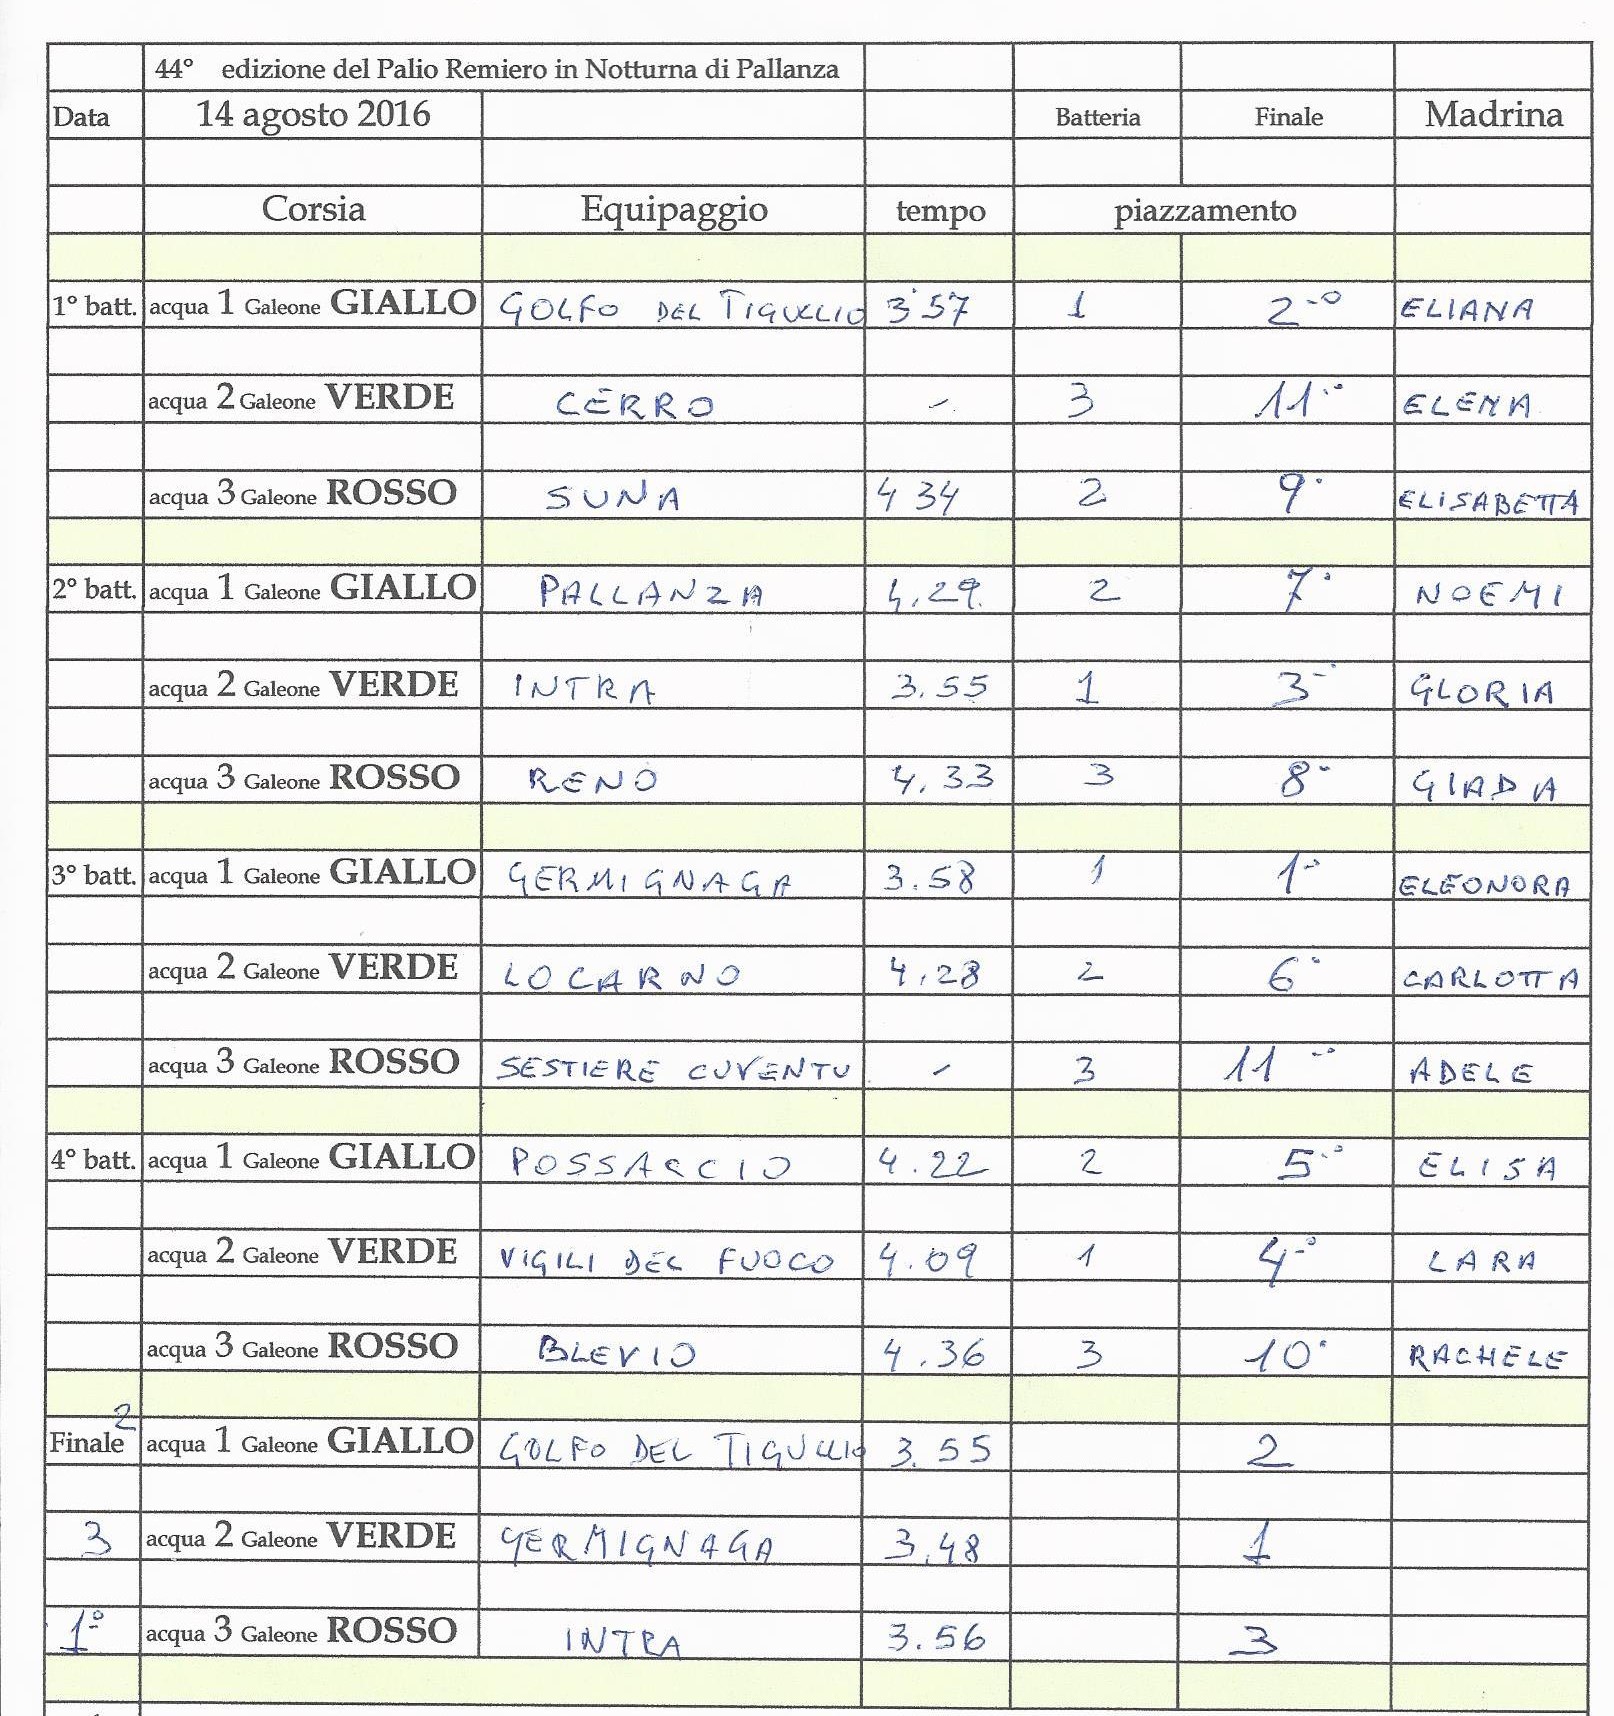 44° edizione del Palio Remiero in Notturna di Pallanza
Data 14 agosto 2016 Batteria Finale Madrina
Corsia Equipaggio tempo piazzamento
1° batt. acqua 1 Galeone GIALLO GOLFO DEL TIGULLIO 3'57 1 2° ELIANA
acqua 2 Galeone VERDE CERRO - 3 11° ELENA
acqua 3 Galeone ROSSO SUNA 4 34 2 9° ELISABETTA
2° batt. acqua 1 Galeone GIALLO PALLANZA 4.29. 2 7° NOEMI
acqua 2 Galeone VERDE INTRA 3.55 1 3° GLORIA
acqua 3 Galeone ROSSO RENO 4.33 3 8° GIADA
3° batt. acqua 1 Galeone GIALLO GERMIGNAGA 3.58 1 1° ELEONORA
acqua 2 Galeone VERDE LOCARNO 4.28 2 6° CARLOTTA
acqua 3 Galeone ROSSO SESTIERE CUVENTU - 3 11° ADELE
4° batt. acqua 1 Galeone GIALLO POSSACCIO 4.22 2 5° ELISA
acqua 2 Galeone VERDE VIGILI DEL FUOCO 4.09 1 4° LARA
acqua 3 Galeone ROSSO BLEVIO 4.36 3 10° RACHELE
2
Finale acqua 1 Galeone GIALLO GOLFO DEL TIGULLIO 3.55 2
3 acqua 2 Galeone VERDE GERMIGNAGA 3.48 1
1° acqua 3 Galeone ROSSO INTRA 3.56 3